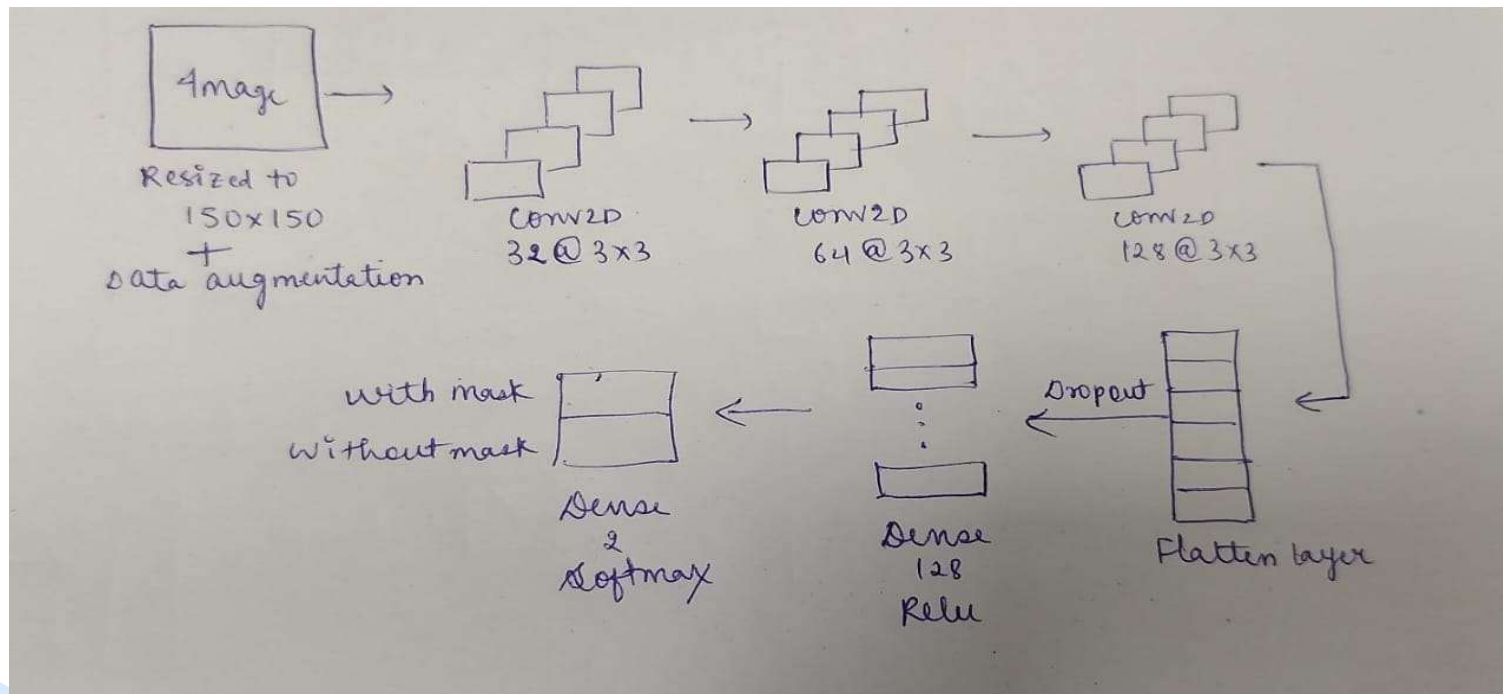 Image
Resized to
150x150
+
Data augmentation
Conv2D
32@3x3
Conv2D
64@3x3
Conv2D
128@3x3
Dropout
Flatten layer
Dense
128
Relu
with mask
without mask
Dense
2
Softmax